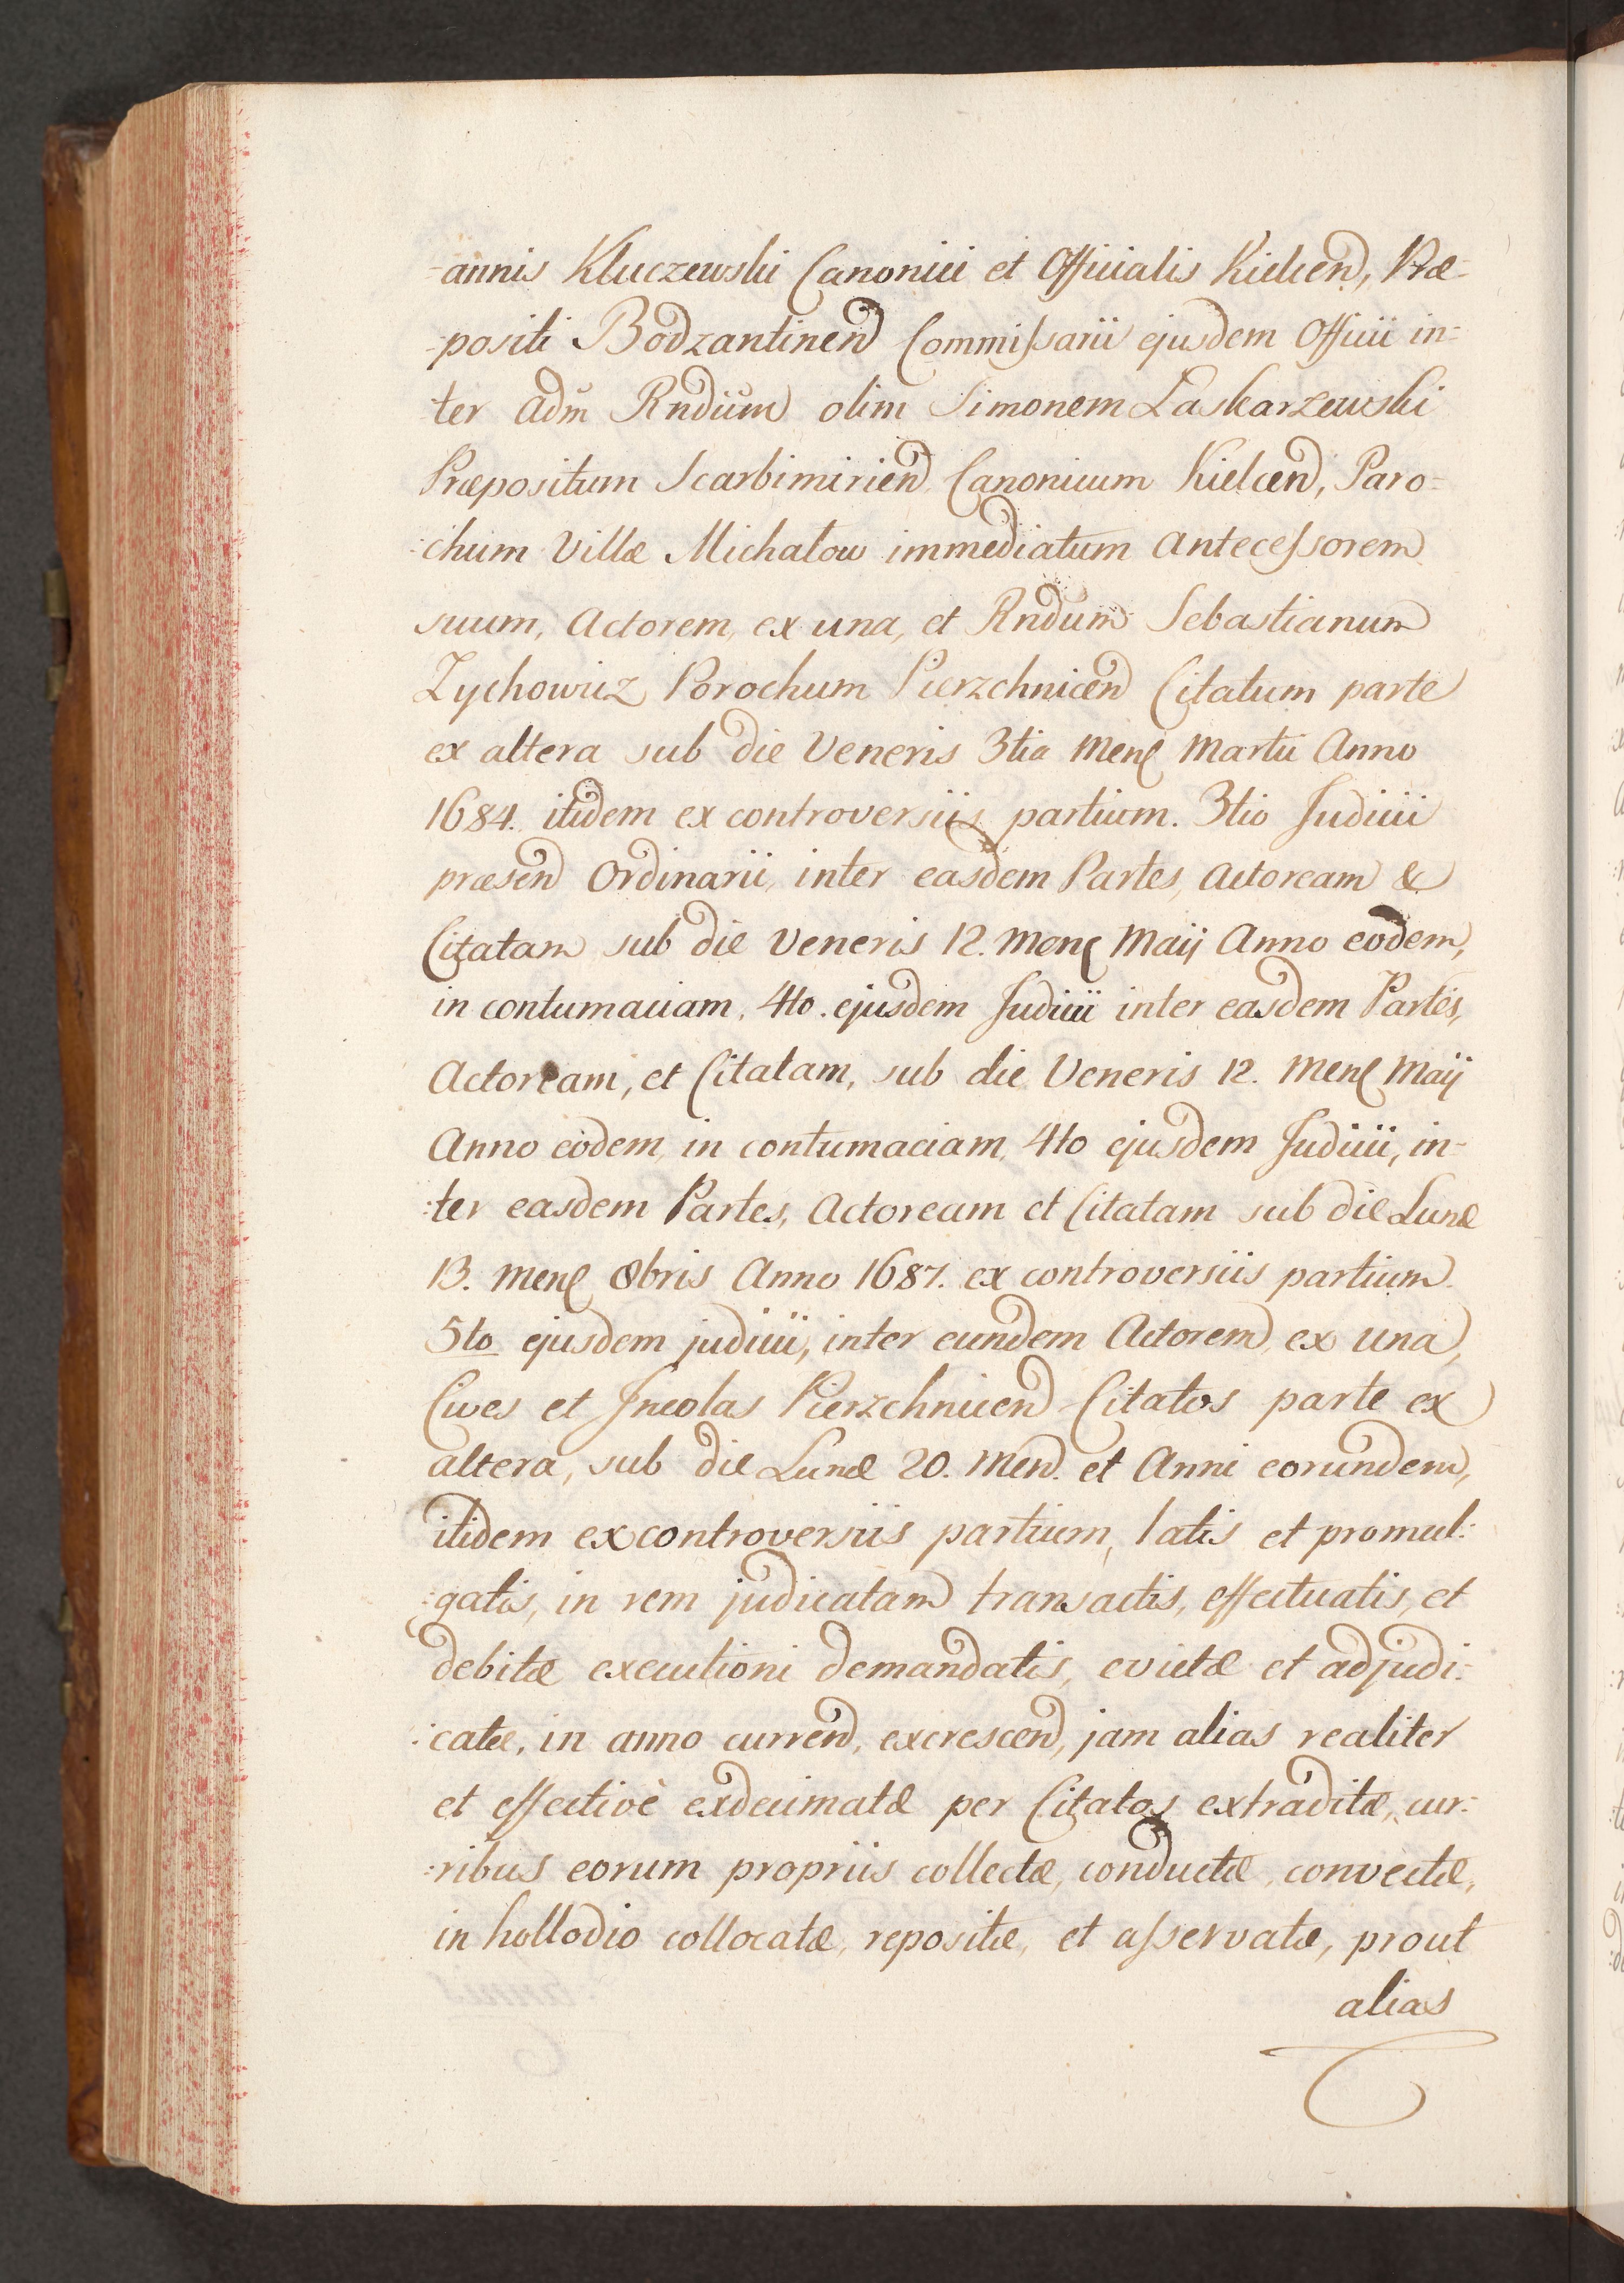 -annis Kluczewski Canonici et Officialis Kielcen, Præ-
-positi Bodzantinen Commissarii ejusdem Officii in-
ter Adm Rndum olim Simonem Laskarzewski
Præpositum Scarbimirien Canonicum Kielcen, Paro-
-chum Villæ Michalow immediatum Antecessorem
suum, Actorem, ex una, et Rndum Sebastianum
Zychowicz Porochum Pierzchnicen Citatum parte
ex altera sub die Veneris 3tia Mens Martii Anno
1684. itidem ex controversiis partium. 3tio Judicii
præsen Ordinarii, inter easdem Partes, Actoream &
Citatam sub die Veneris 12. Mens Maij Anno eodem,
in contumaciam, 4to. ejusdem Judicii inter easdem Partes,
Actoream, et Citatam, sub die Veneris 12. Mens Maij
Anno eodem, in contumaciam, 4to ejusdem Judicii, in-
:ter easdem Partes, Actoream et Citatam sub die Lunæ
13. Mens 8bris Anno 1687. ex controversiis partium.
5to ejusdem judicii, inter eundem Actorem, ex una,
Cives et Incolas Pierzchnicen Citatos parte ex
altera, sub die Lunæ 20. Men. et Anni eorundem,
itidem ex controversiis partium, latis et promul:
:gatis, in rem judicatam transactis, effectuatis, et
debitæ executioni demandatis, evictæ et adjudi:
:catæ, in anno curren, excrescen, jam alias realiter
et effectivè exdecimatæ per Citatos extraditæ, cur:
:ribus eorum propriis collectæ, conductæ, convectæ,
in hollodio collocatæ, repositæ, et asservatæ, prout
alias